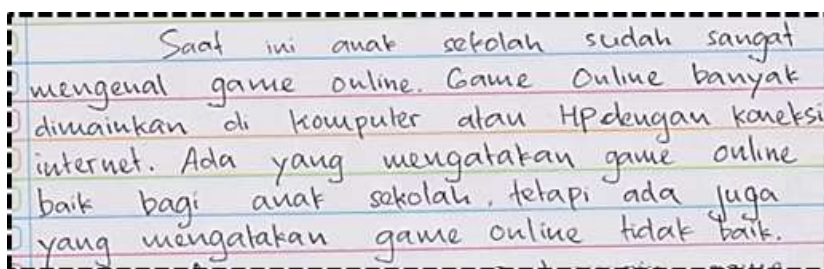 Saat ini anak sekolah sudah sangat
mengenal game online. Game Online banyak
dimainkan di komputer atau HP dengan koneksi
internet. Ada yang mengatakan game online
baik bagi anak sekolah, tetapi ada juga
yang mengatakan game online tidak baik.